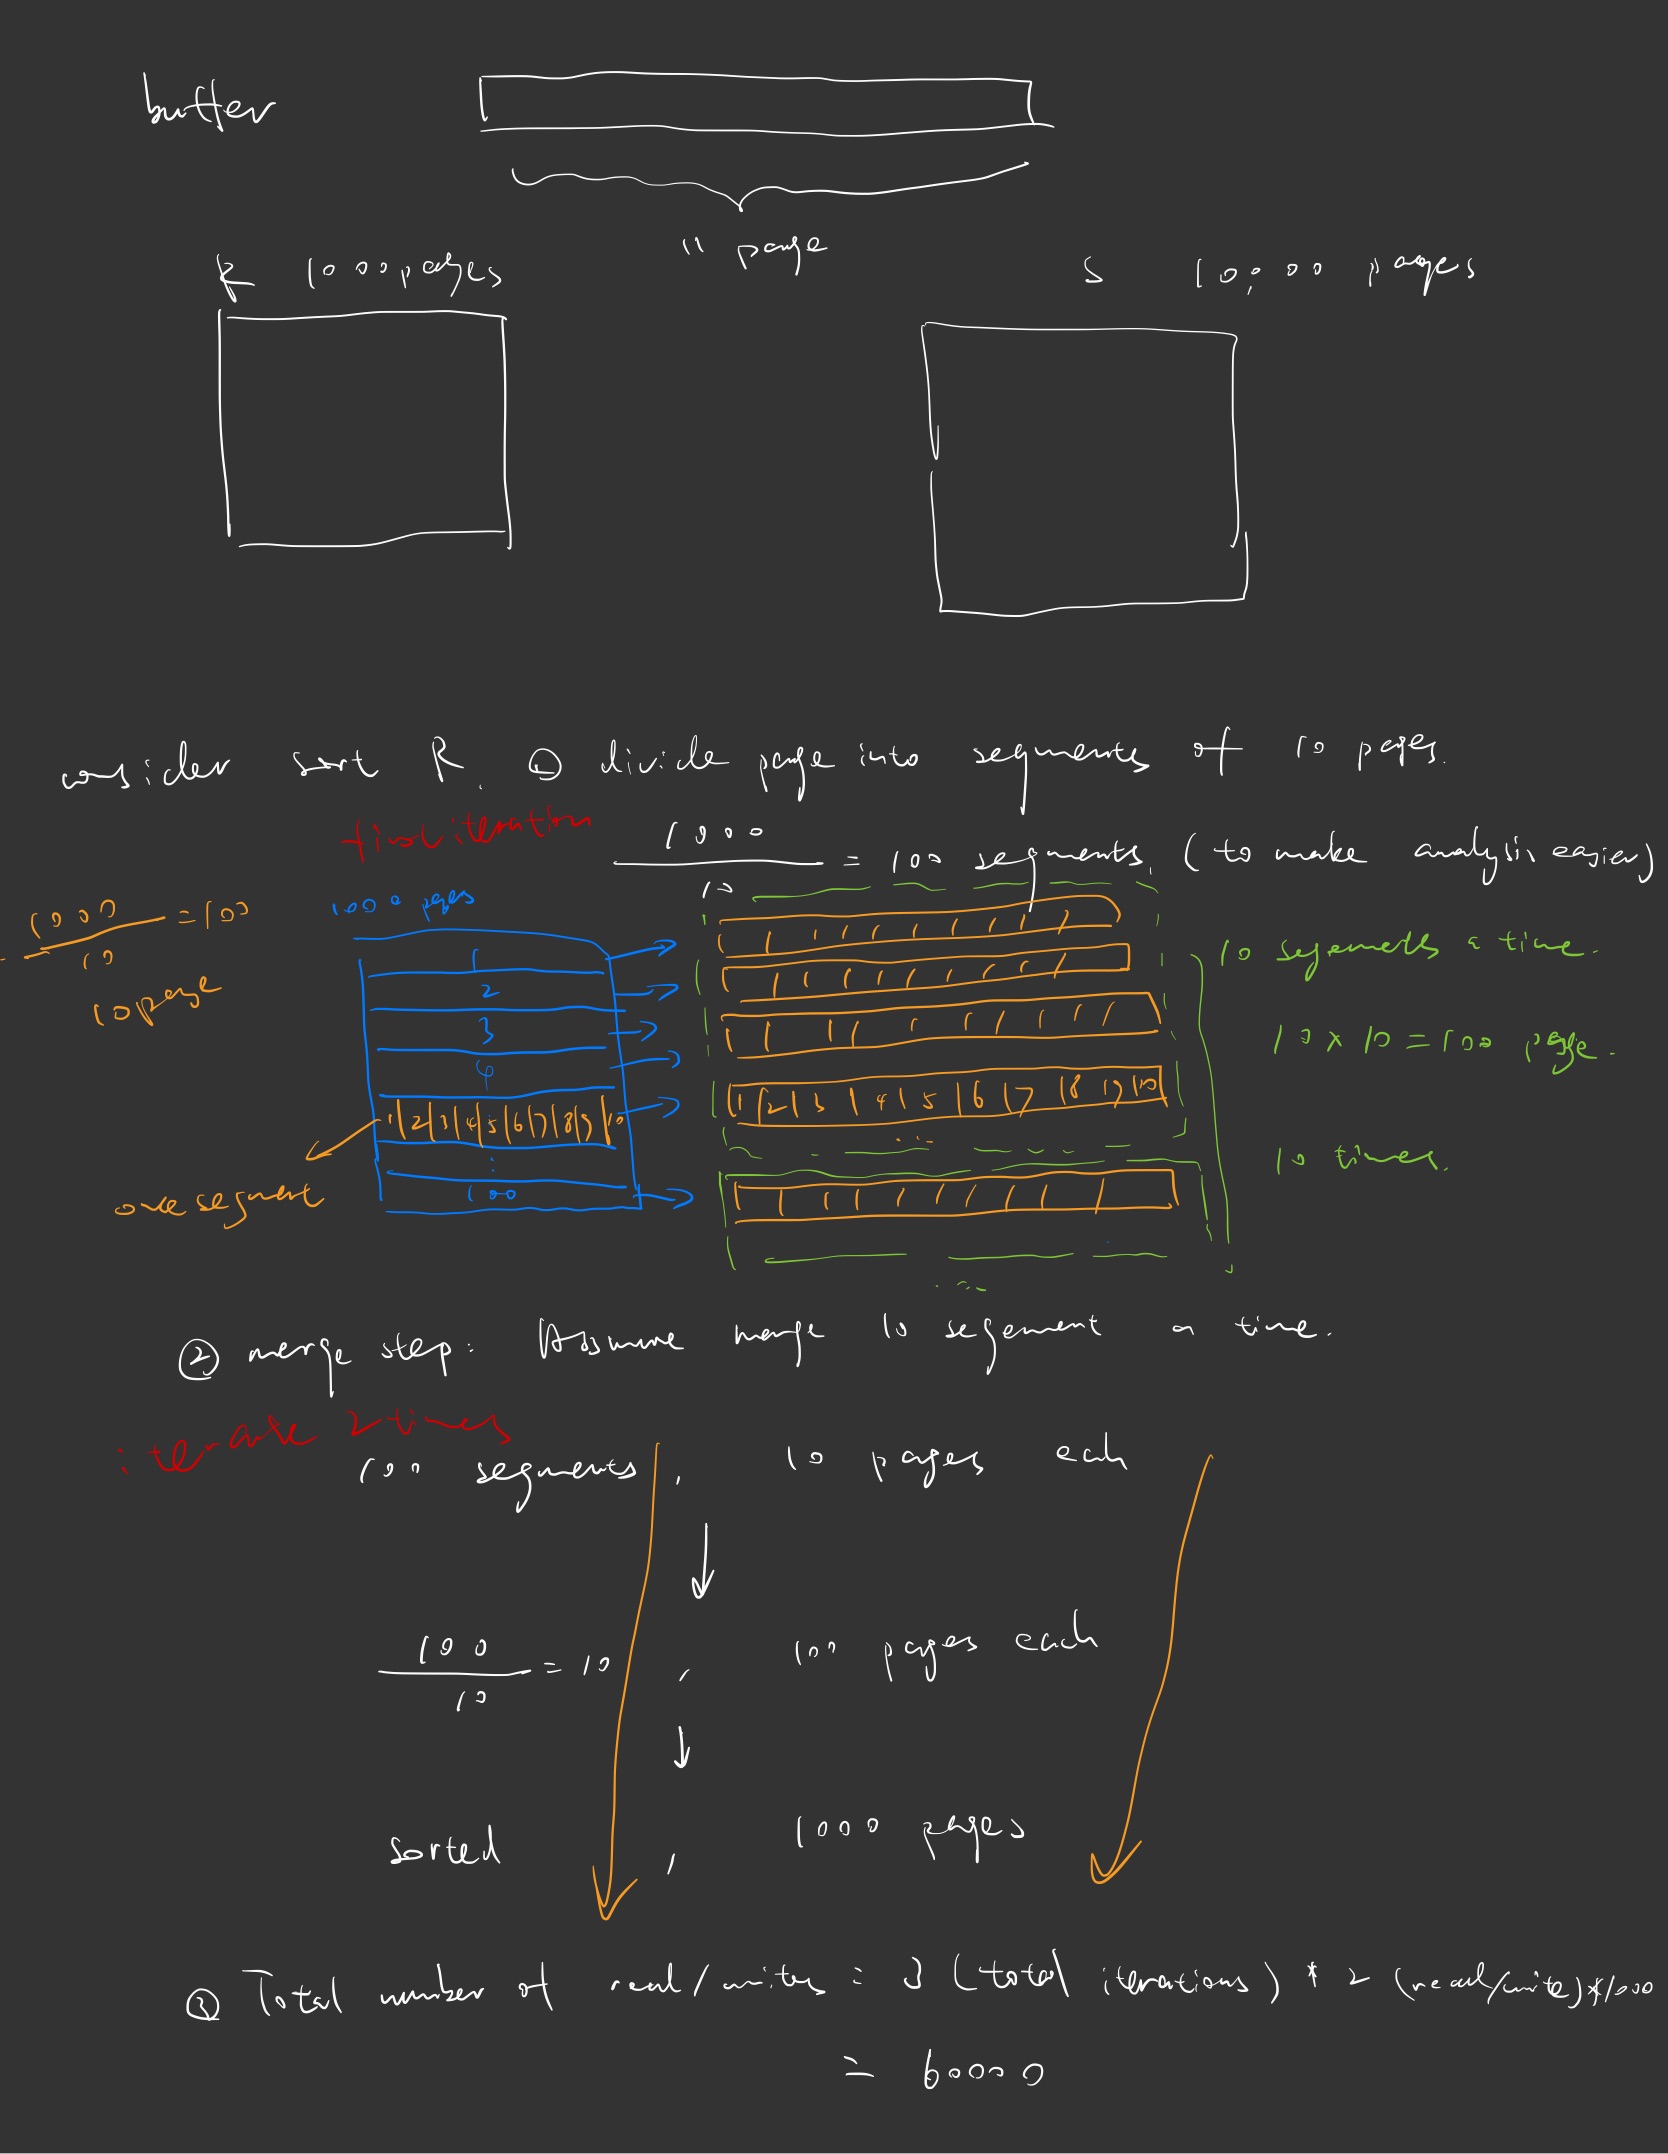 buffer
11 page
R 1000 pages
S 10,000 pages
consider sort R. ① divide page into segments of 10 pages.
first iteration
1000 / 10 = 100 segments. (to make analysis easier)
1000 / 10 = 100
10 page
1000 pages
1
2
3
4
1 2 3 4 5 6 7 8 9 10
⋮
100
one segment
1 2 3 4 5 6 7 8 9 10
...
10 segements a time.
10 x 10 = 100 page.
10 times.
...
② merge step: Assume merge 10 segement a time.
iterate 2 times
100 segments, 10 pages each
100 / 10 = 10, 100 pages each
sorted, 1000 pages
③ Total number of read/writes = 3 (total iterations) * 2 (read/write) * 1000
= 60000